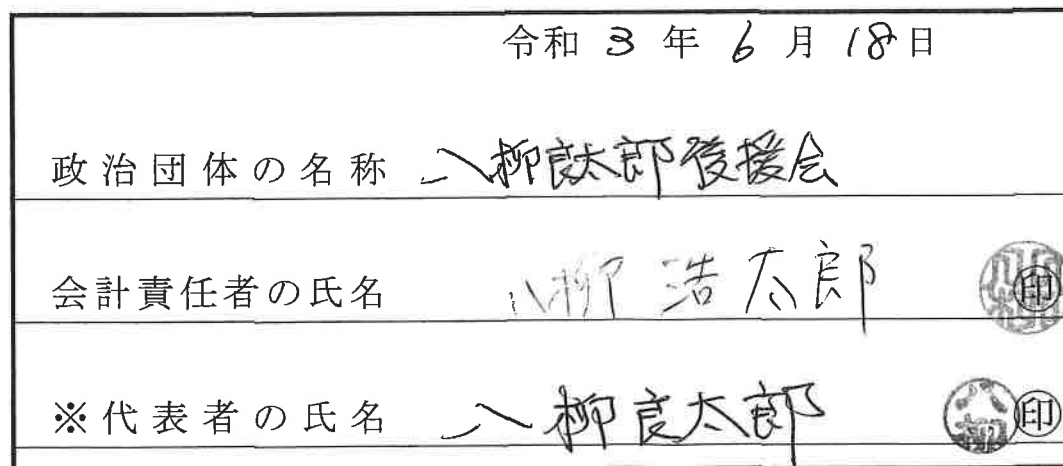 令和 3 年 6 月 18日
政治団体の名称 八柳良太郎後援会
会計責任者の氏名 八柳 浩太郎 印
※代表者の氏名 八柳良太郎 印